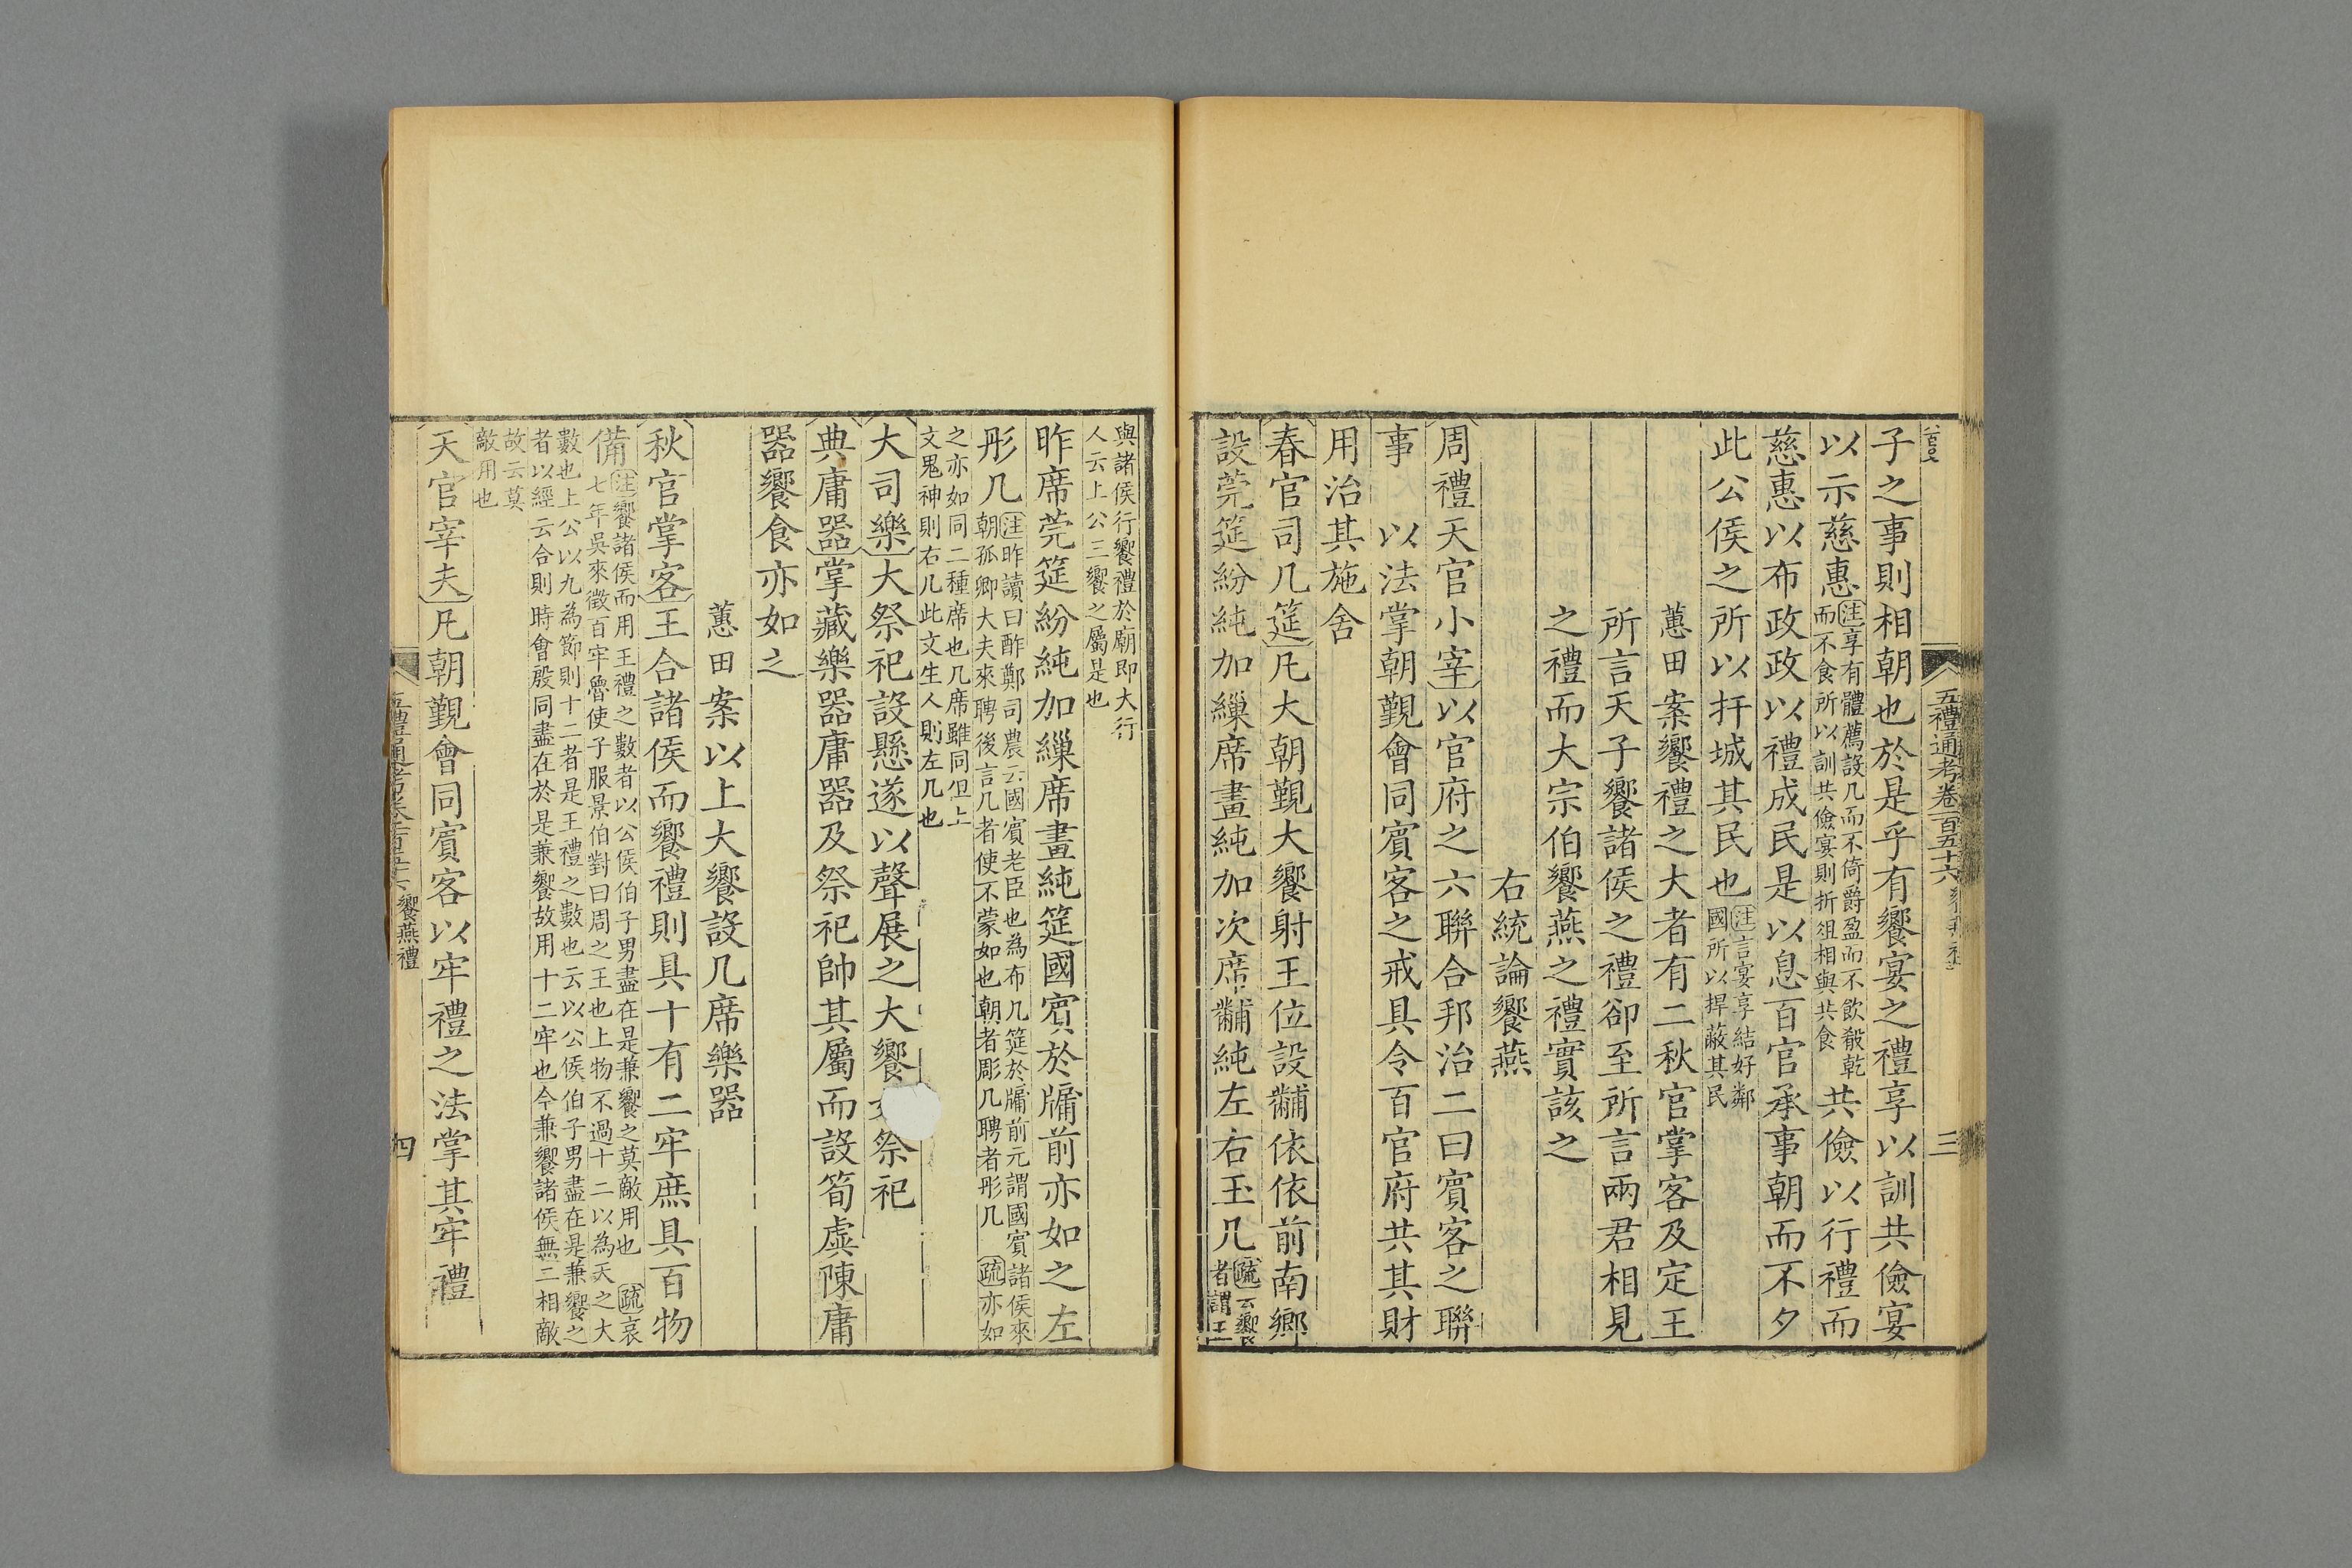 五禮通考卷一百五十六
三
子之事則相朝也於是乎有饗宴之禮享以訓共儉宴
以示慈惠注享有體薦設几而不倚爵盈而不飲殽乾
而不食所以訓共儉宴則折俎相與共食共儉以行禮而
慈惠以布政政以禮成民是以息百官承事朝而不夕
此公侯之所以扞城其民也注言宴享結好鄰
國所以捍蔽其民
蕙田案饗禮之大者有二秋官掌客及定王
所言天子饗諸侯之禮卻至所言兩君相見
之禮而大宗伯饗燕之禮實該之
右統論饗燕
周禮天官小宰以官府之六聯合邦治二曰賓客之聯
事 以法掌朝覲會同賓客之戒具令百官府共其財
用治其施舍
春官司几筵凡大朝覲大饗射王位設黼依依前南鄉
設莞筵紛純加繅席畫純加次席黼純左右玉几疏云饗
者謂王
與諸侯行饗禮於廟即大行
人云上公三饗之屬是也
昨席莞筵紛純加繅席畫純筵國賓於牖前亦如之左
彤几注昨讀曰酢鄭司農云國賓老臣也為布几筵於牖前元謂國賓諸侯來
朝孤卿大夫來聘後言几者使不蒙如也朝者彫几聘者彤几 疏亦如
之亦如同二種席也几席雖同但上
文鬼神則右几此文生人則左几也
大司樂大祭祀設懸遂以聲展之大饗 祭祀
典庸器掌藏樂器庸器及祭祀帥其屬而設筍虡陳庸
器饗食亦如之
蕙田案以上大饗設几席樂器
秋官掌客王合諸侯而饗禮則具十有二牢庶具百物
備注饗諸侯而用王禮之數者以公侯伯子男盡在是兼饗之莫敵用也 疏哀
七年吳來徵百牢魯使子服景伯對曰周之王也上物不過十二以為天之大
數也上公以九為節則十二者是王禮之數也云以公侯伯子男盡在是兼饗之
者以經云合則時會殷同盡在於是兼饗故用十二牢也今兼饗諸侯無二相敵
故云莫
敵用也
天官宰夫凡朝覲會同賓客以牢禮之法掌其牢禮
饗燕禮
四